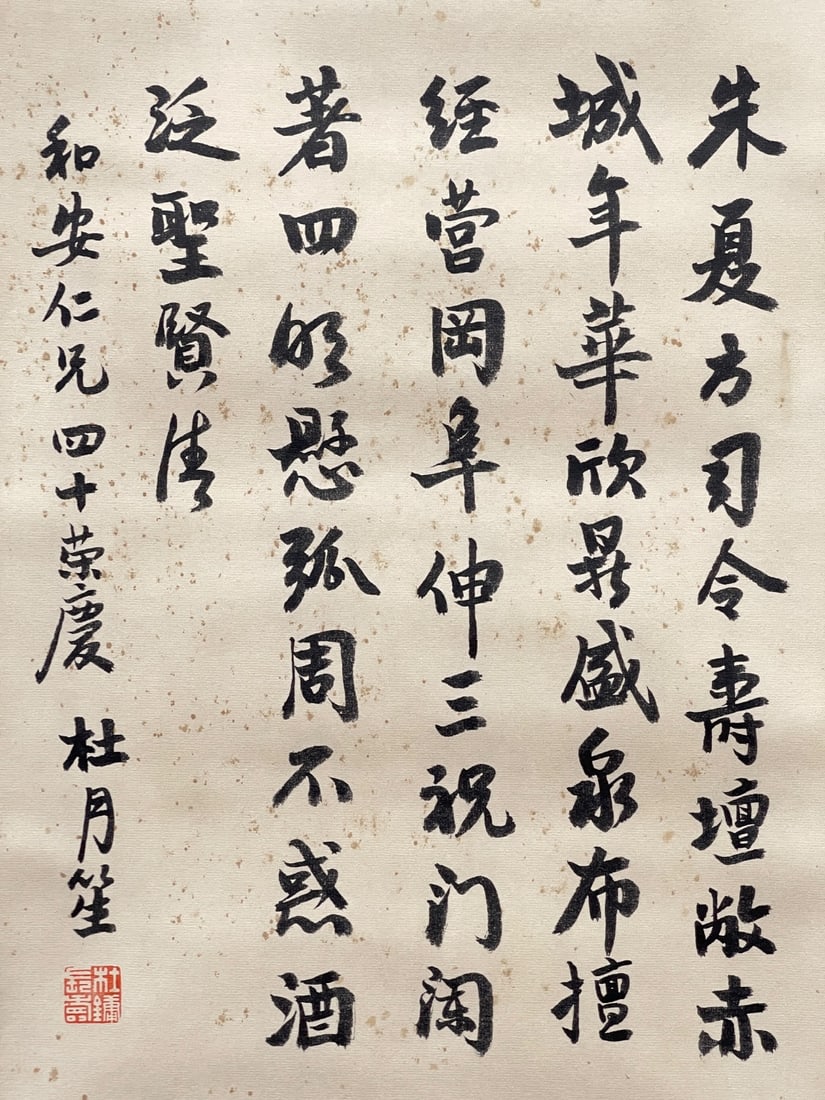 朱夏方司令壽壇敞赤
城年華欣晁盛泉布擅
經营岡阜伸三祝门阑
著四明懸弧周不惑酒
泛聖賢清
和安仁兄四十荣慶 杜月笙
杜鏞